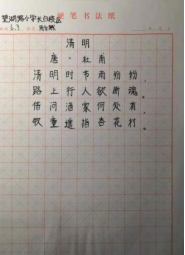 硬笔书法纸
清明
唐·杜甫
清明时节雨纷纷，
路上行人欲断魂。
借问酒家何处有，
牧童遥指杏花村。